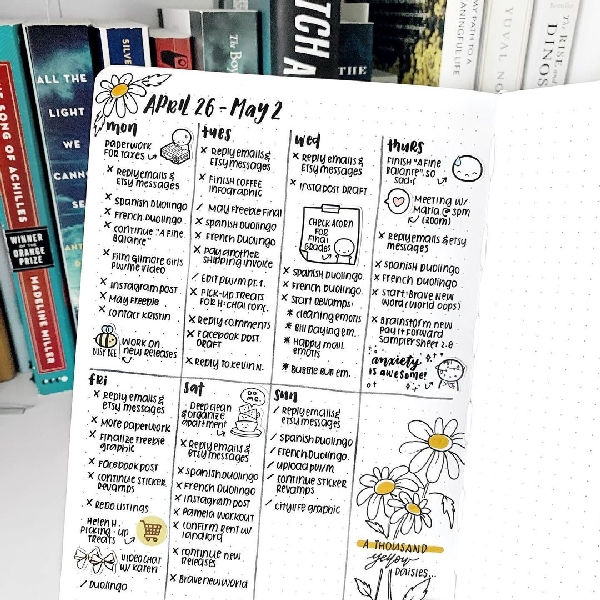 APRIL 26 - MAY 2
mon
PAPERWORK
FOR TAXES
x Reply emails &
Etsy messages
x Spanish Duolingo
x French Duolingo
x continue "A Fine
Balance"
x Film Gilmore Girls
PWME video
x Instagram post
x May Freebie
x contact Kristin
BUSY BEE
WORK ON
new Releases
tues
x Reply emails &
Etsy messages
x Finish coffee
infographic
/ May Freebie Final
x Spanish Duolingo
x French Duolingo
x Pay another
shipping invoice
/ Edit PWM pt. 1
x Pick-up treats
x Reply comments
x Facebook post
DRAFT
x Reply to Kevin N.
wed
x Reply emails &
Etsy messages
x Insta post DRAFT
CHECK ACORN
FOR
Final
Grades
x Spanish Duolingo
x French Duolingo
x Start Revamps:
* cleaning emotis
* Bill Paying em.
* Happy mail
emotis
* Bubble Bath em.
thurs
FINISH "A Fine
Balance". SO
sad :(
Meeting w/
Maria @ 3pm
(Zoom)
x Reply emails & Etsy
messages
x Spanish Duolingo
x French Duolingo
x Start Brave New
World (World Oops)
x Brainstorm new
Pay it Forward
Sampler sheet 2.0
anxiety
is awesome!
fri
x Reply emails &
Etsy messages
x More paperwork
x Finalize Freebie
graphic
x Facebook post
x continue sticker
Revamps
x Redo listings
Helen H.
Picking-up
treats
VIDEO CHAT
w/ Karen
/ Duolingo
sat
DO
ME.
Deep clean
& organize
apartment
x Reply emails &
Etsy messages
x Spanish Duolingo
x French Duolingo
x Instagram post
x Pamela workout
x confirm Rent w/
landlord
x continue new
Releases
x Brave New World
sun
/ Reply emails &
Etsy messages
/ Spanish Duolingo
/ French Duolingo
/ upload PWM
/ continue sticker
Revamps
/ citylife graphic
A THOUSAND
yellow
DAISIES...
SONG OF ACHILLES
WINNER OF
THE ORANGE
PRIZE
MADELINE MILLER
ALL THE
LIGHT
WE
SILVER
THE
MY PATH TO A
MEANINGFUL LIFE
YUVAL NO
THE RISE AND
DINOS